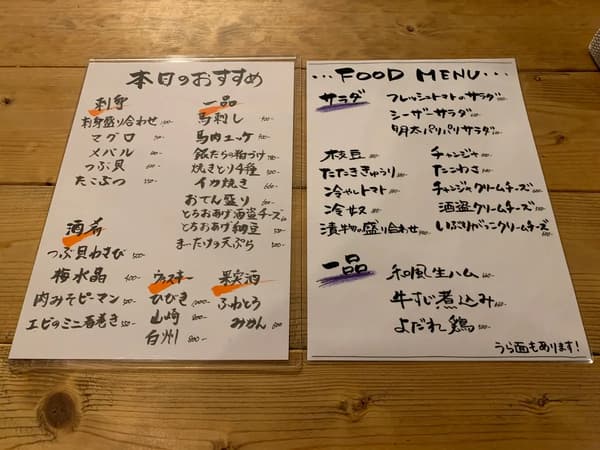 本日のおすすめ
刺身
刺身盛り合わせ
マグロ
メバル
つぶ貝
たこぶつ
一品
馬刺し
馬肉ユッケ
銀だらの粕づけ
焼きとり4種
イカ焼き
おでん盛り
とちおあげ酒盗チーズ
とちおあげ納豆
まいたけの天ぷら
酒肴
つぶ貝わさび
梅水晶
肉みそピーマン
エビのミニ春巻き
ウィスキー
ひびき
山崎
白州
果実酒
ふわとろ
みかん
...FOOD MENU...
サラダ
フレッシュトマトのサラダ
シーザーサラダ
明太パリパリサラダ
枝豆
たたききゅうり
冷やしトマト
冷奴
漬物の盛り合わせ
チャンジャ
たこわさ
チャンジャクリームチーズ
酒盗クリームチーズ
いぶりがっこクリームチーズ
一品
和風生ハム
牛すじ煮込み
よだれ鶏
うら面もあります!